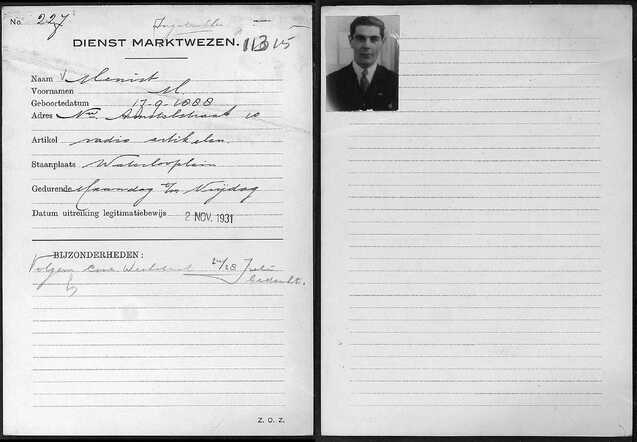 No. 227 Ingetrokken
DIENST MARKTWEZEN. 11315
Naam Menist
Voornamen M.
Geboortedatum 17-9-1888
Adres Nw. Amstelstraat 10
Artikel radio artikelen.
Staanplaats Waterlooplein
Gedurende Maandag t/m Vrijdag
Datum uitreiking legitimatiebewijs 2 NOV. 1931
BIJZONDERHEDEN:
Volgens 24/28 Juli
Z. O. Z.